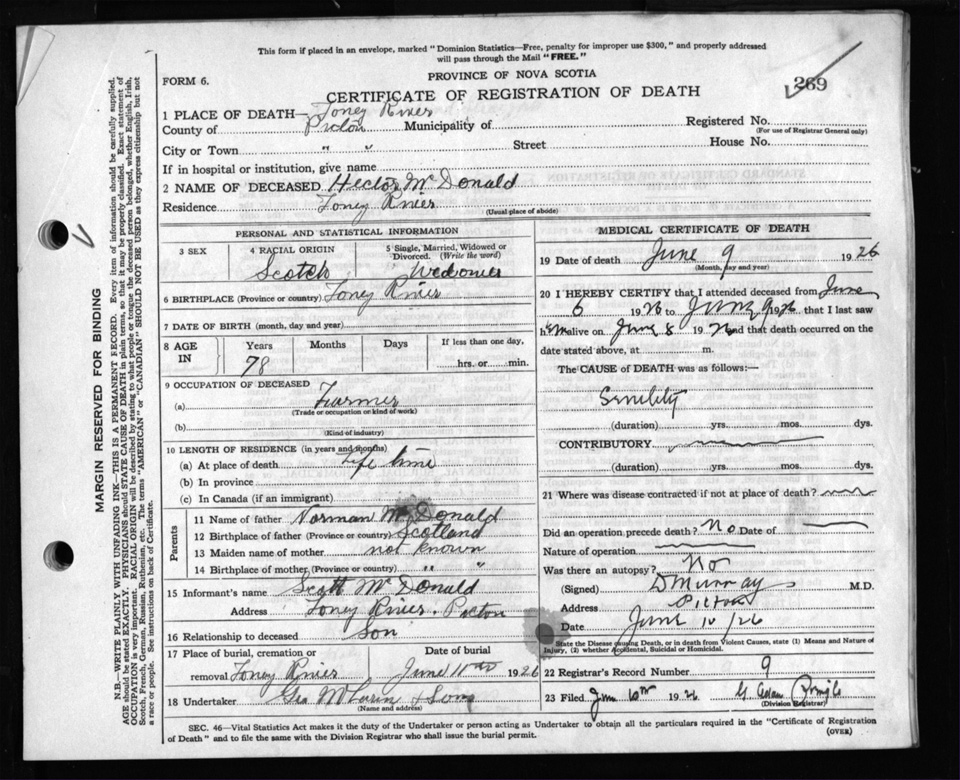 This form if placed in an envelope, marked "Dominion Statistics—Free, penalty for improper use $300," and properly addressed
will pass through the Mail "FREE."
PROVINCE OF NOVA SCOTIA
FORM 6.
CERTIFICATE OF REGISTRATION OF DEATH
269
1 PLACE OF DEATH— Toney River
County of Pictou Municipality of Registered No.
(For use of Registrar General only)
City or Town " " Street House No.
If in hospital or institution, give name
2 NAME OF DECEASED Hector McDonald
Residence Toney River
(Usual place of abode)
PERSONAL AND STATISTICAL INFORMATION
3 SEX 4 RACIAL ORIGIN 5 Single, Married, Widowed or
Divorced. (Write the word)
Scotch Widower
6 BIRTHPLACE (Province or country) Toney River
7 DATE OF BIRTH (month, day and year)
8 AGE IN Years Months Days If less than one day,
78 hrs. or min.
9 OCCUPATION OF DECEASED
(a) Farmer
(Trade or occupation or kind of work)
(b)
(Kind of industry)
10 LENGTH OF RESIDENCE (in years and months)
(a) At place of death Life time
(b) In province
(c) In Canada (if an immigrant)
Parents
11 Name of father Norman McDonald
12 Birthplace of father (Province or country) Scotland
13 Maiden name of mother not known
14 Birthplace of mother (Province or country) " "
15 Informant's name Scott McDonald
Address Toney River. Pictou
16 Relationship to deceased Son
17 Place of burial, cremation or Date of burial
removal Toney River June 11 1926
18 Undertaker Geo McLaren & Sons
(Name and address)
MEDICAL CERTIFICATE OF DEATH
19 Date of death June 9 1926
(Month, day and year)
20 I HEREBY CERTIFY that I attended deceased from June
6 1926 to June 9 1926 that I last saw
him alive on June 8 1926 and that death occurred on the
date stated above, at m.
The CAUSE of DEATH was as follows:—
Senility
(duration) yrs. mos. dys.
CONTRIBUTORY
(duration) yrs. mos. dys.
21 Where was disease contracted if not at place of death?
Did an operation precede death? No Date of
Nature of operation
Was there an autopsy? No
(Signed) D Murray M.D.
Address Pictou
Date June 10/26
State the Disease causing Death, or in death from Violent Causes, state (1) Means and Nature of
Injury, (2) whether Accidental, Suicidal or Homicidal.
22 Registrar's Record Number 9
23 Filed June 10th 1926
(Division Registrar)
SEC. 46—Vital Statistics Act makes it the duty of the Undertaker or person acting as Undertaker to obtain all the particulars required in the "Certificate of Registration
of Death" and to file the same with the Division Registrar who shall issue the burial permit.
(OVER)
MARGIN RESERVED FOR BINDING
N.B.—WRITE PLAINLY WITH UNFADING INK—THIS IS A PERMANENT RECORD. Every item of information should be carefully supplied.
AGE should be stated EXACTLY. PHYSICIANS should STATE CAUSE OF DEATH in plain terms, so that it may be properly classified. Exact statement of
OCCUPATION is very important. RACIAL ORIGIN will be described by stating to what people or tongue the deceased person belonged, whether English, Irish,
Scotch, French, German, Russian, Ruthenian, etc. The terms "AMERICAN" or "CANADIAN" SHOULD NOT BE USED as they express citizenship but not
a race or people. See instructions on back of Certificate.